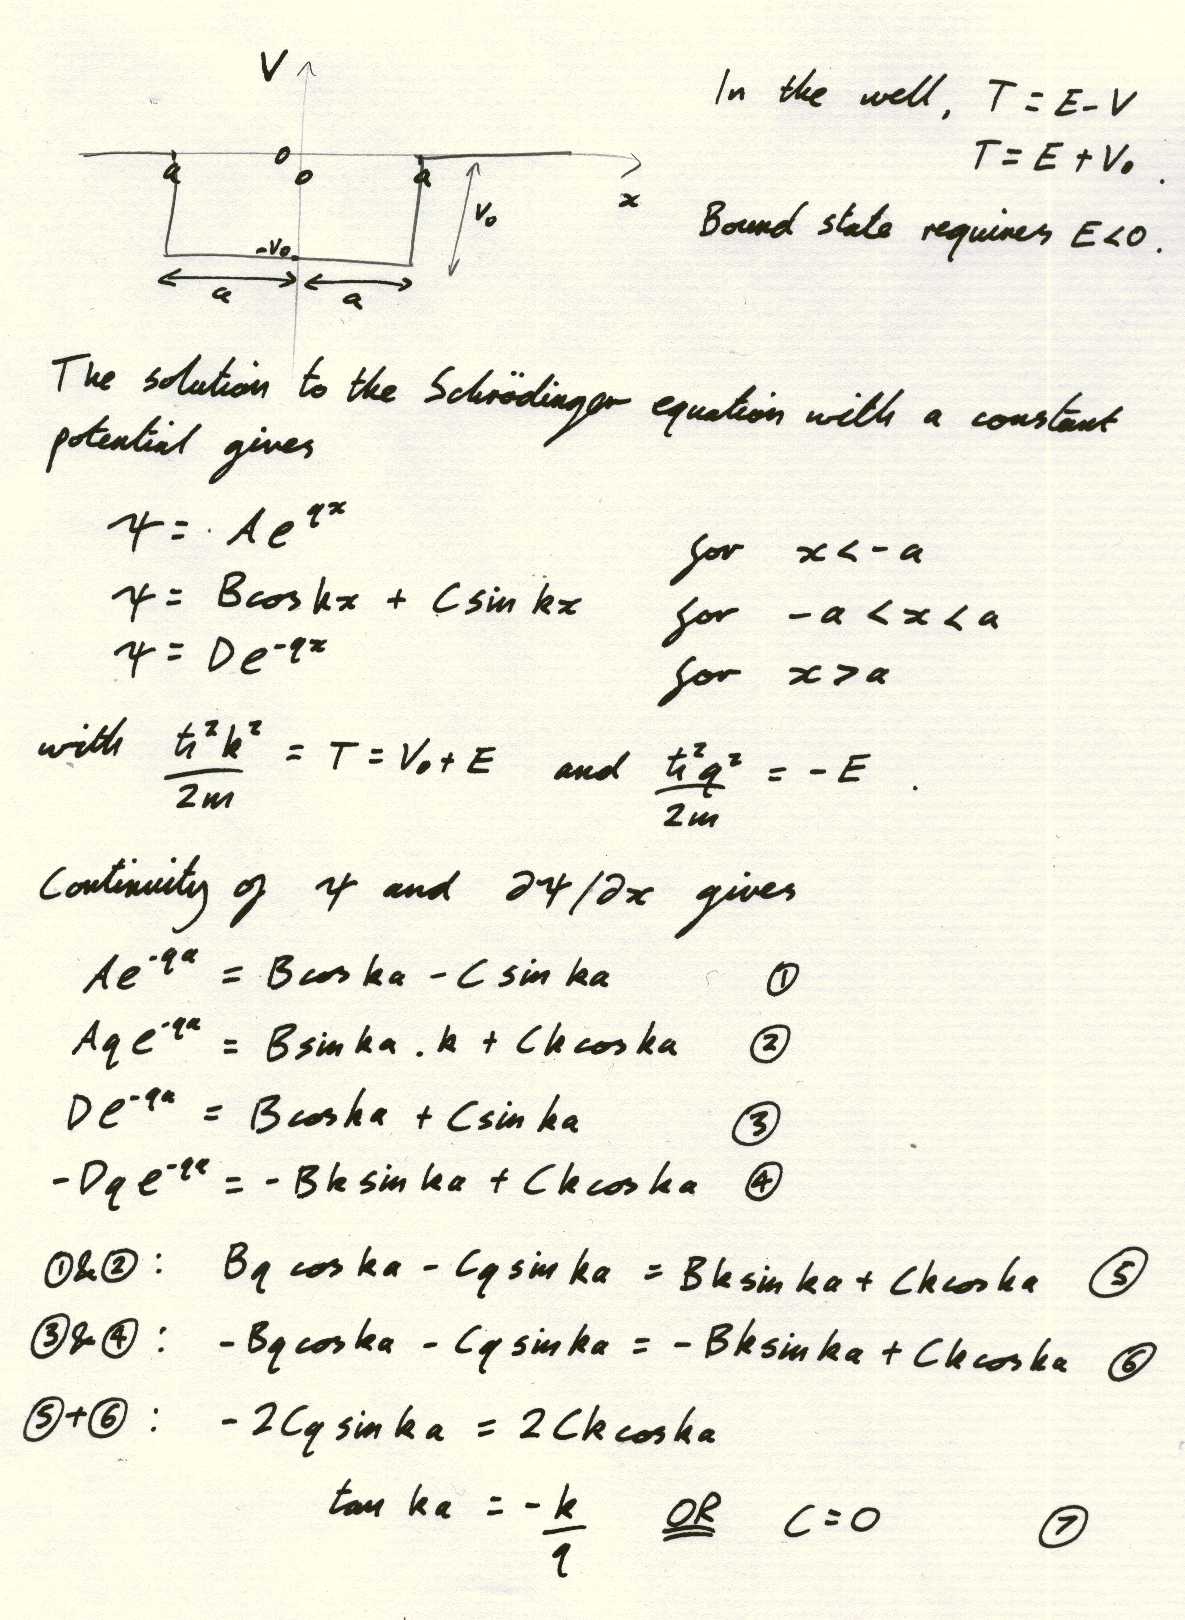 V
In the well, T = E - V
T = E + V₀ .
0
a
0
a
x
V₀
Bound state requires E<0.
-V₀
a
a
The solution to the Schrödinger equation with a constant
potential gives
ψ = A e^{qx} for x < -a
ψ = B cos kx + C sin kx for -a < x < a
ψ = D e^{-qx} for x > a
with ħ²k²/2m = T = V₀ + E and ħ²q²/2m = -E .
Continuity of ψ and ∂ψ/∂x gives
A e^{-qa} = B cos ka - C sin ka ①
A q e^{-qa} = B sin ka . k + C k cos ka ②
D e^{-qa} = B cos ka + C sin ka ③
-D q e^{-qa} = - B k sin ka + C k cos ka ④
①&②: B q cos ka - C q sin ka = B k sin ka + C k cos ka ⑤
③&④: -B q cos ka - C q sin ka = - B k sin ka + C k cos ka ⑥
⑤+⑥: -2 C q sin ka = 2 C k cos ka
tan ka = -k/q OR C = 0 ⑦